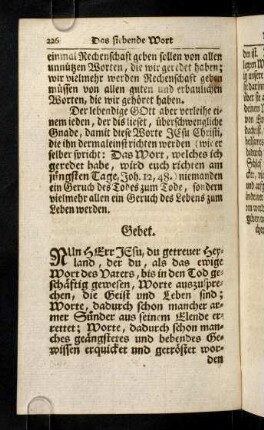 226 Das siebende Wort
einmal Rechenschaft geben sollen von allen
unnützen Worten, die wir geredet haben;
wir vielmehr werden Rechenschaft geben
müssen von allen guten und erbaulichen
Worten, die wir gehöret haben.
Der lebendige GOtt aber verleihe ei-
nem jeden, der dis lieset, überschwengliche
Gnade, damit diese Worte JEsu Christi,
die ihn dermaleinst richten werden (wie er
selber spricht: Das Wort, welches ich
geredet habe, wird euch richten am
jüngsten Tage, Joh. 12, 48.) niemanden
ein Geruch des Todes zum Tode, sondern
vielmehr allen ein Geruch des Lebens zum
Leben werden.
Gebet.
NUn HErr JEsu, du getreuer Hey-
land, der du, als das ewige
Wort des Vaters, bis in den Tod ge-
schäftig gewesen, Worte auszuspre-
chen, die Geist und Leben sind;
Worte, dadurch schon mancher ar-
mer Sünder aus seinem Elende er-
rettet; Worte, dadurch schon man-
ches geängstetes und bebendes Ge-
wissen erquicket und getröstet wor-
den